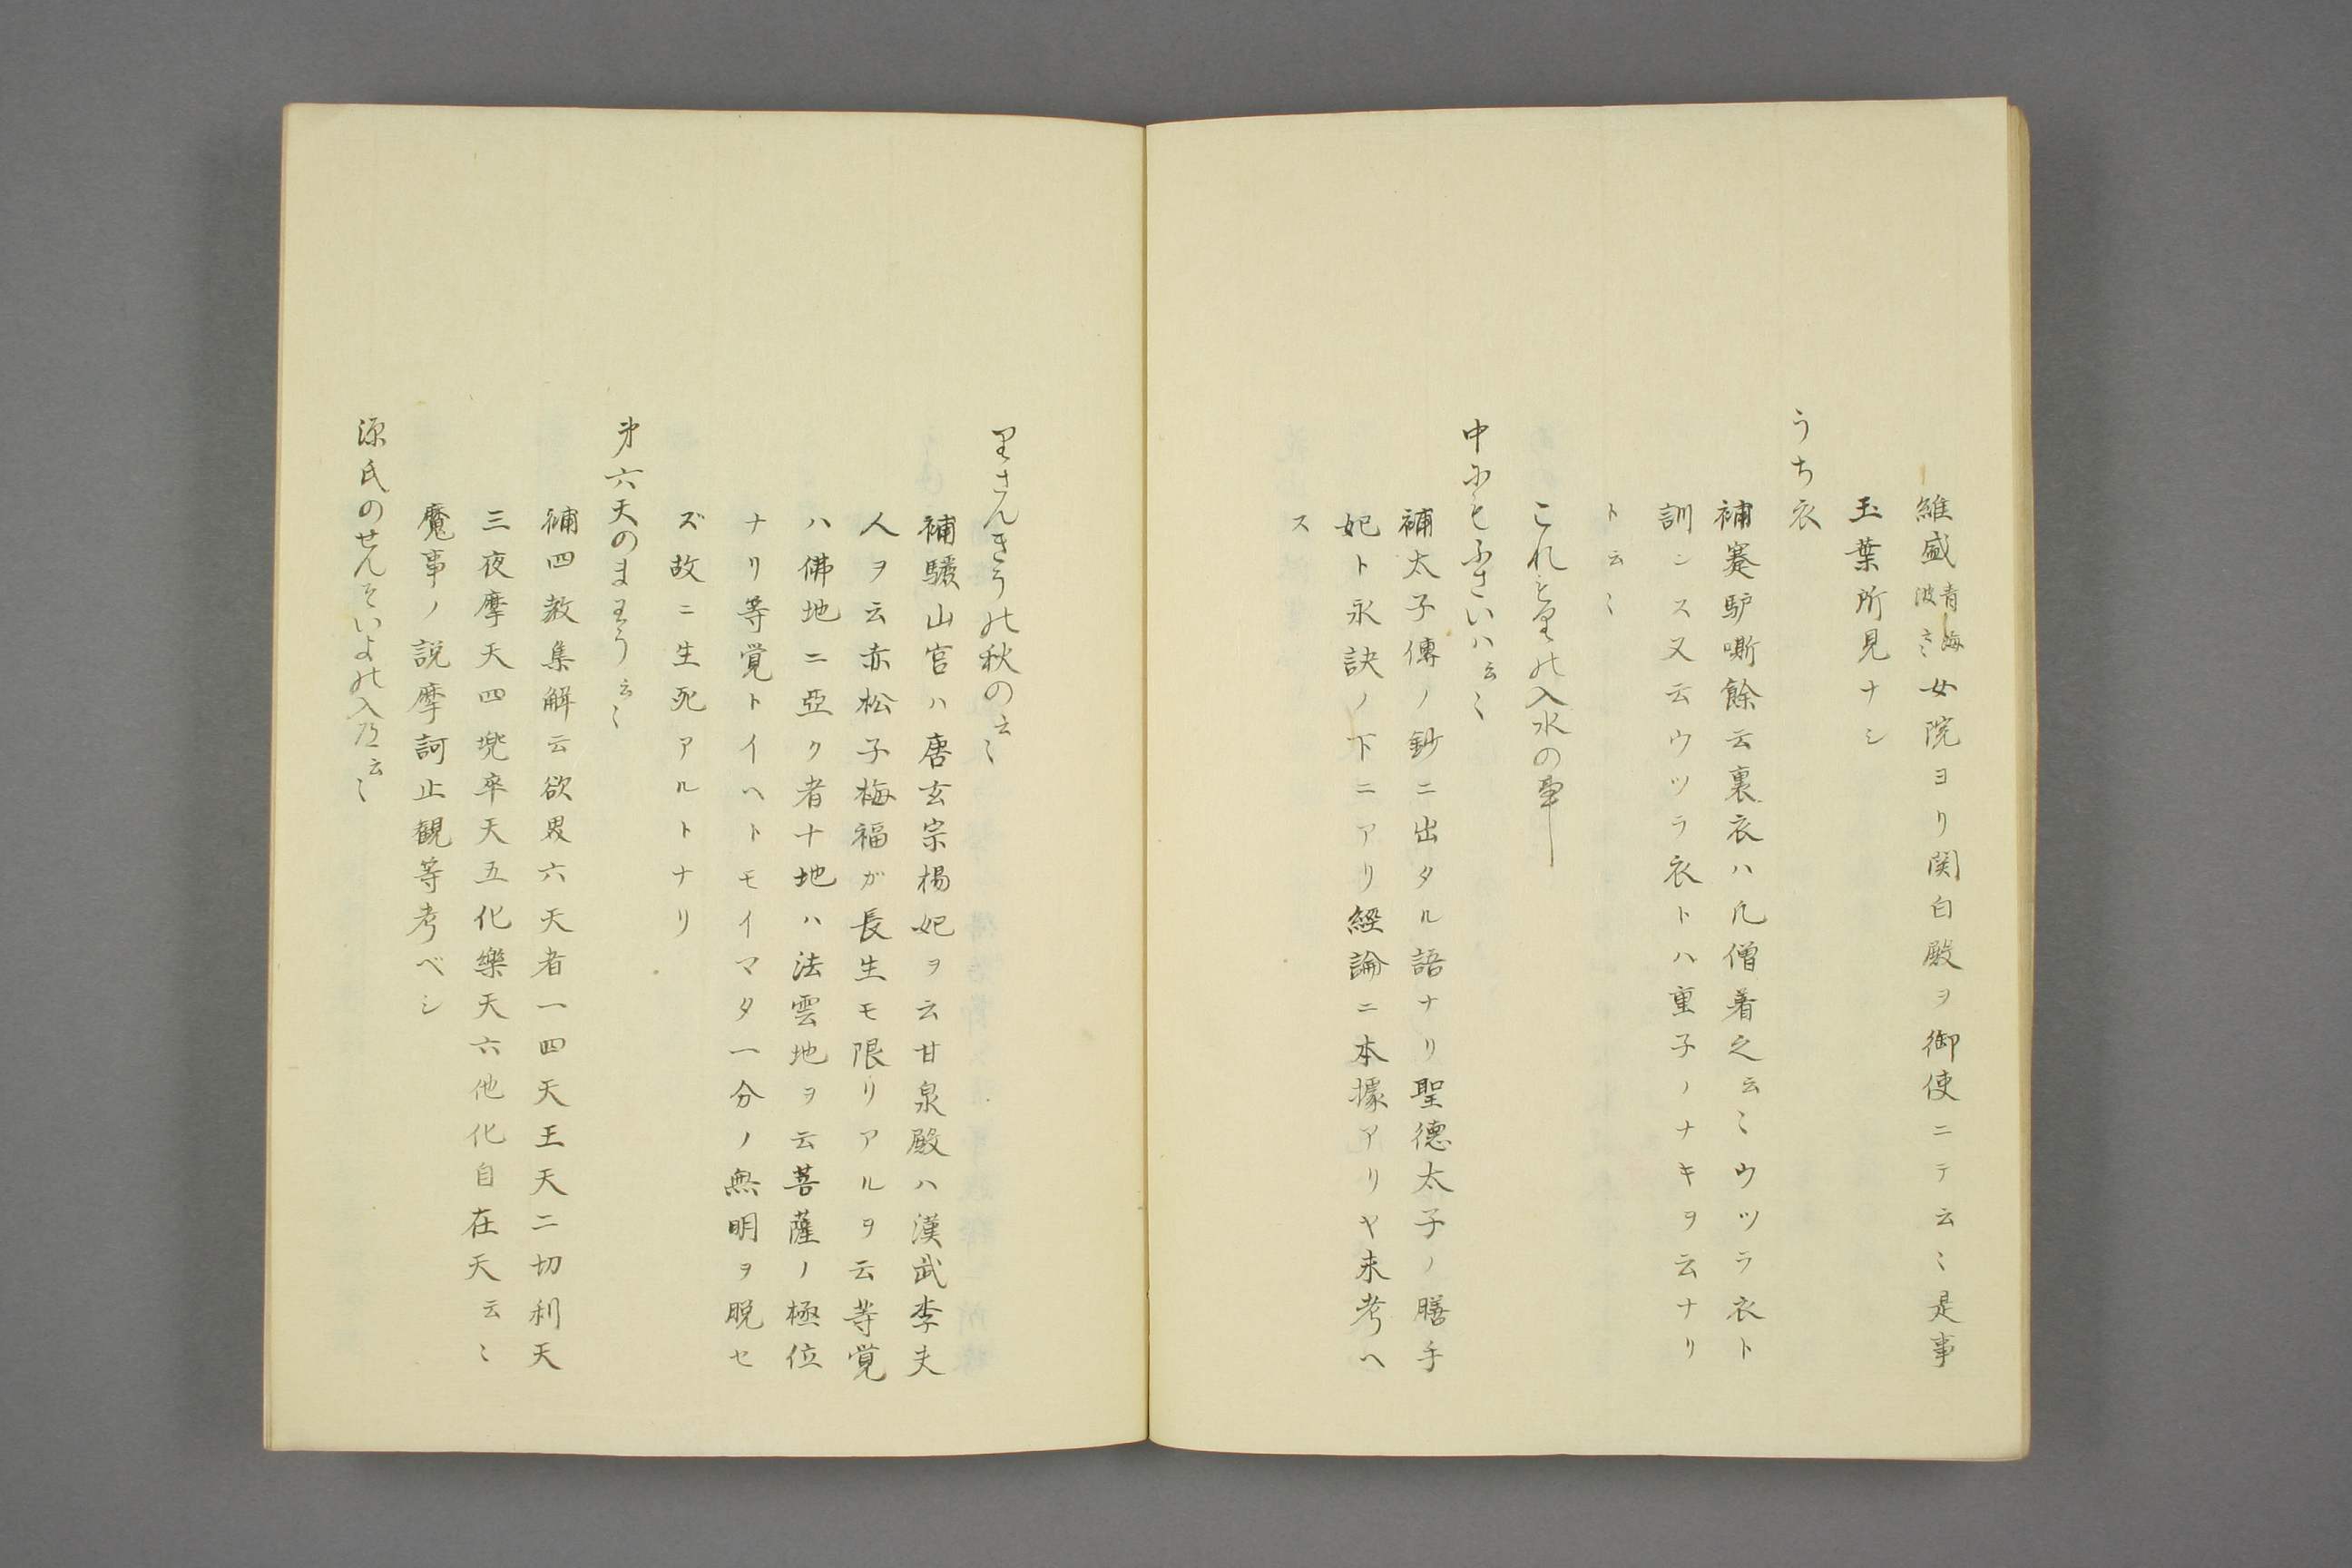 維盛青海波云〻女院ヨリ関白殿ヲ御使ニテ云〻是事
玉葉所見ナシ
うち衣
補蹇驢嘶餘云裏衣ハ凡僧着之云〻ウツラ衣ト
訓ンス又云ウツラ衣トハ重子ノナキヲ云ナリ
ト云〻
これもりの入水の事
中にもふさいハ云〻
補太子傳ノ鈔ニ出タル語ナリ聖徳太子ノ膳手
妃ト永訣ノ下ニアリ經論ニ本據アリヤ未考ヘ
ス
りさんきうの秋の云〻
補驪山宮ハ唐玄宗楊妃ヲ云甘泉殿ハ漢武李夫
人ヲ云赤松子梅福ガ長生モ限リアルヲ云等覚
ハ佛地ニ亞ク者十地ハ法雲地ヲ云菩薩ノ極位
ナリ等覚トイヘトモイマタ一分ノ無明ヲ脱セ
ズ故ニ生死アルトナリ
第六天のまわう云〻
補四教集解云欲界六天者一四天王天二切利天
三夜摩天四兜率天五化樂天六他化自在天云〻
魔事ノ説摩訶止観等考ベシ
源氏のせんそいよの入道云〻